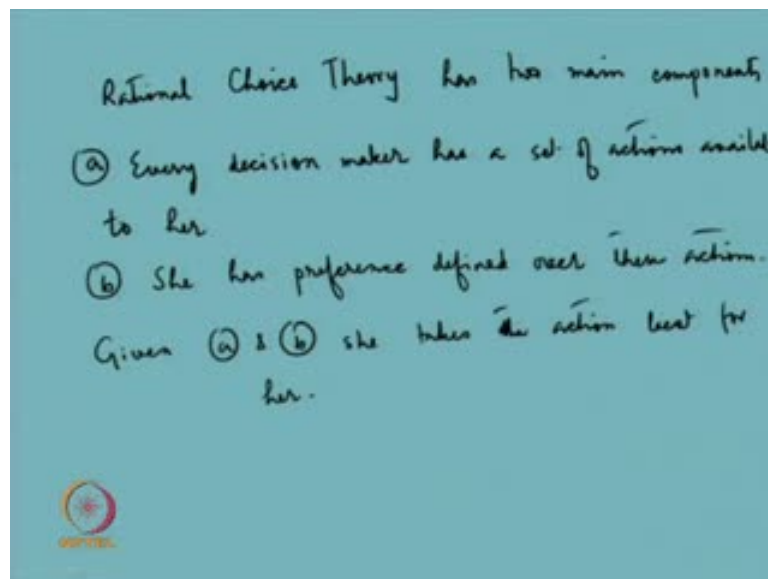 Rational Choice Theory has two main components
(a) Every decision maker has a set of actions availab
to her
(b) She has preference defined over these actions.
Given (a) & (b) she takes the action best for
her.
NPTEL